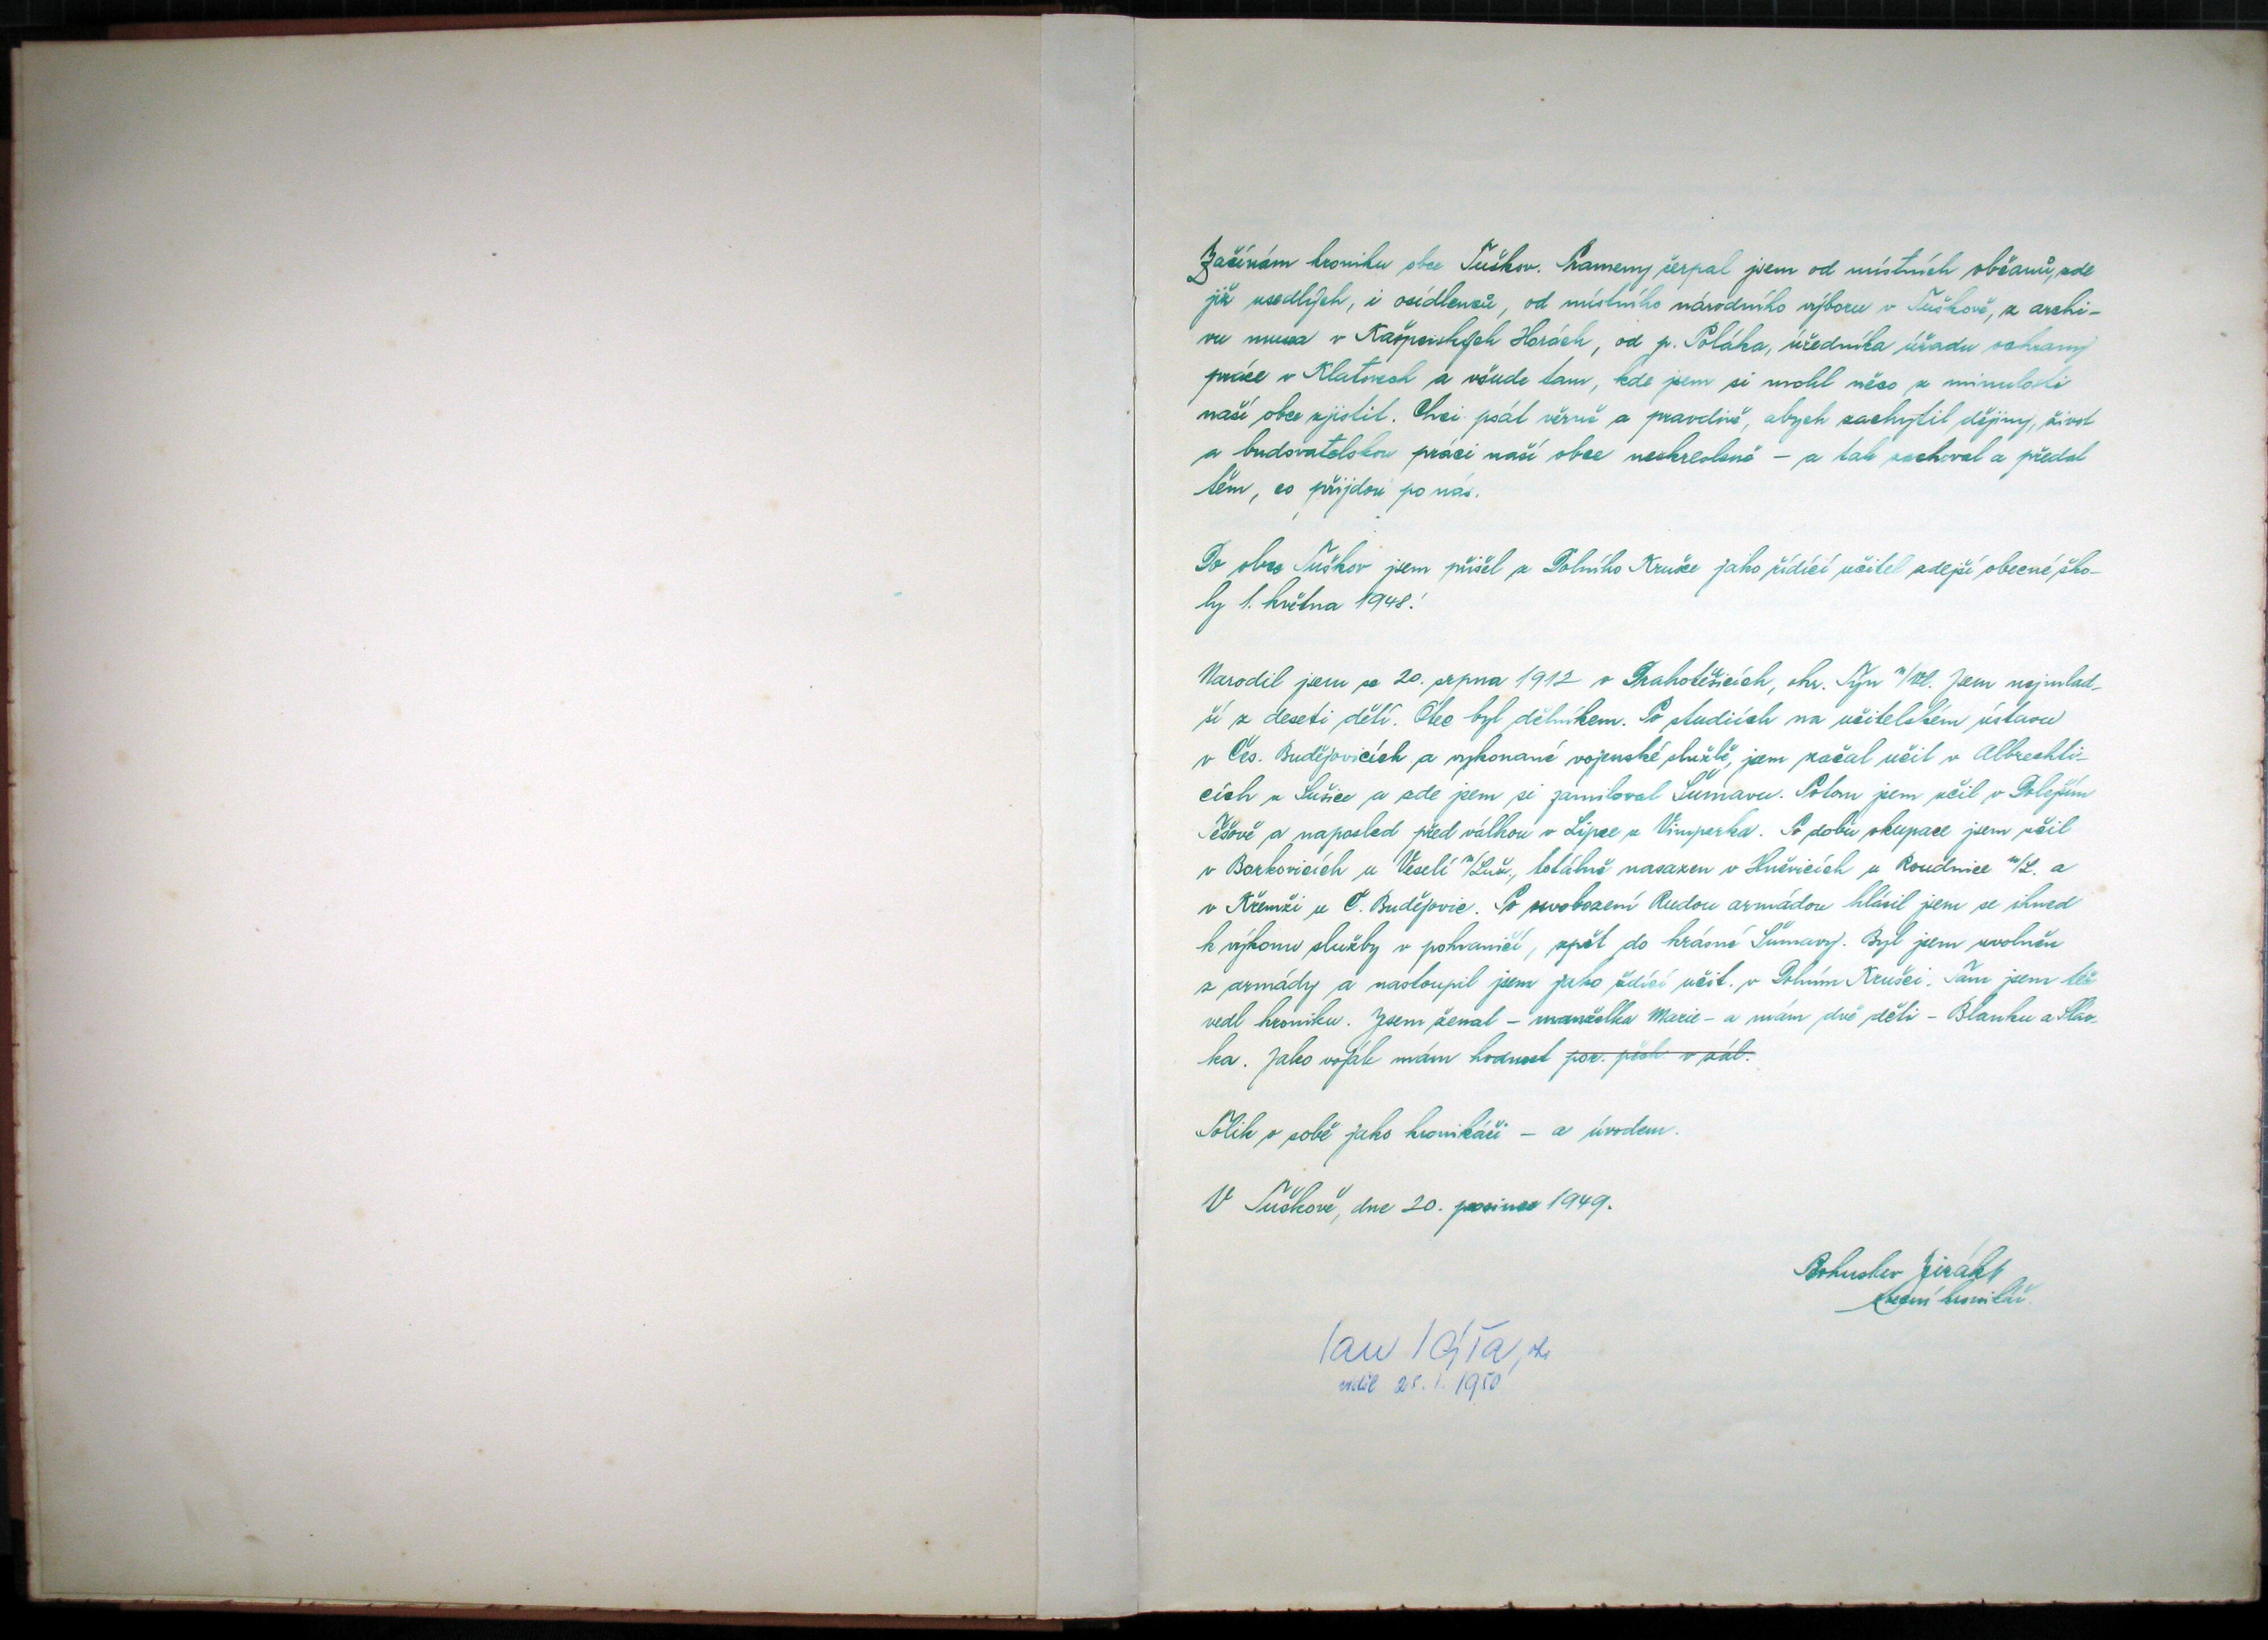 Začínám kroniku obce Tuškov. Prameny čerpal jsem od místních občanů, zde
již usedlých, i osídlenců, od místního národního výboru v Tuškově, z archi-
vu musea v Kašperských Horách, od p. Poláka, úředníka úřadu ochrany
práce v Klatovech a všude tam, kde jsem si mohl něco z minulosti
naší obce zjistit. Chci psát věrně a pravdivě, abych zachytil dějiny, život
a budovatelskou práci naší obce nezkresleně – a tak zachoval a předal
těm, co přijdou po nás.
Do obce Tuškov jsem přišel z Dolního Krušce jako řídící učitel zdejší obecné ško-
ly 1. května 1948.
Narodil jsem se 20. srpna 1912 v Drahotěšicích, okr. Týn n/Vl. Jsem nejmlad-
ší z deseti dětí. Otec byl dělníkem. Po studiích na učitelském ústavu
v Čes. Budějovicích a vykonané vojenské službě, jsem začal učit v Albrechti-
cích u Sušice a zde jsem si zamiloval Šumavu. Potom jsem učil v Dolejším
Těšově a naposled před válkou v Lipce u Vimperka. Po dobu okupace jsem učil
v Borkovicích u Veselí n/Luž., totálně nasazen v Hněvicích u Roudnice n/L. a
v Křemži u Č. Budějovic. Po osvobození Rudou armádou hlásil jsem se ihned
k výkonu služby v pohraničí, zpět do krásné Šumavy. Byl jsem uvolněn
z armády a nastoupil jsem jako řídící učit. v Dolním Krušci. Tam jsem též
vedl kroniku. Jsem ženat – manželka Marie – a mám dvě děti – Blanku a Sláv-
ka. Jako voják mám hodnost por. pěch. v zál.
Tolik o sobě jako kronikáři – a úvodem.
V Tuškově, dne 20. prosince 1949.
Bohuslav Jirák
obecní kronikář.
Jan
viděl 25. 1. 1950